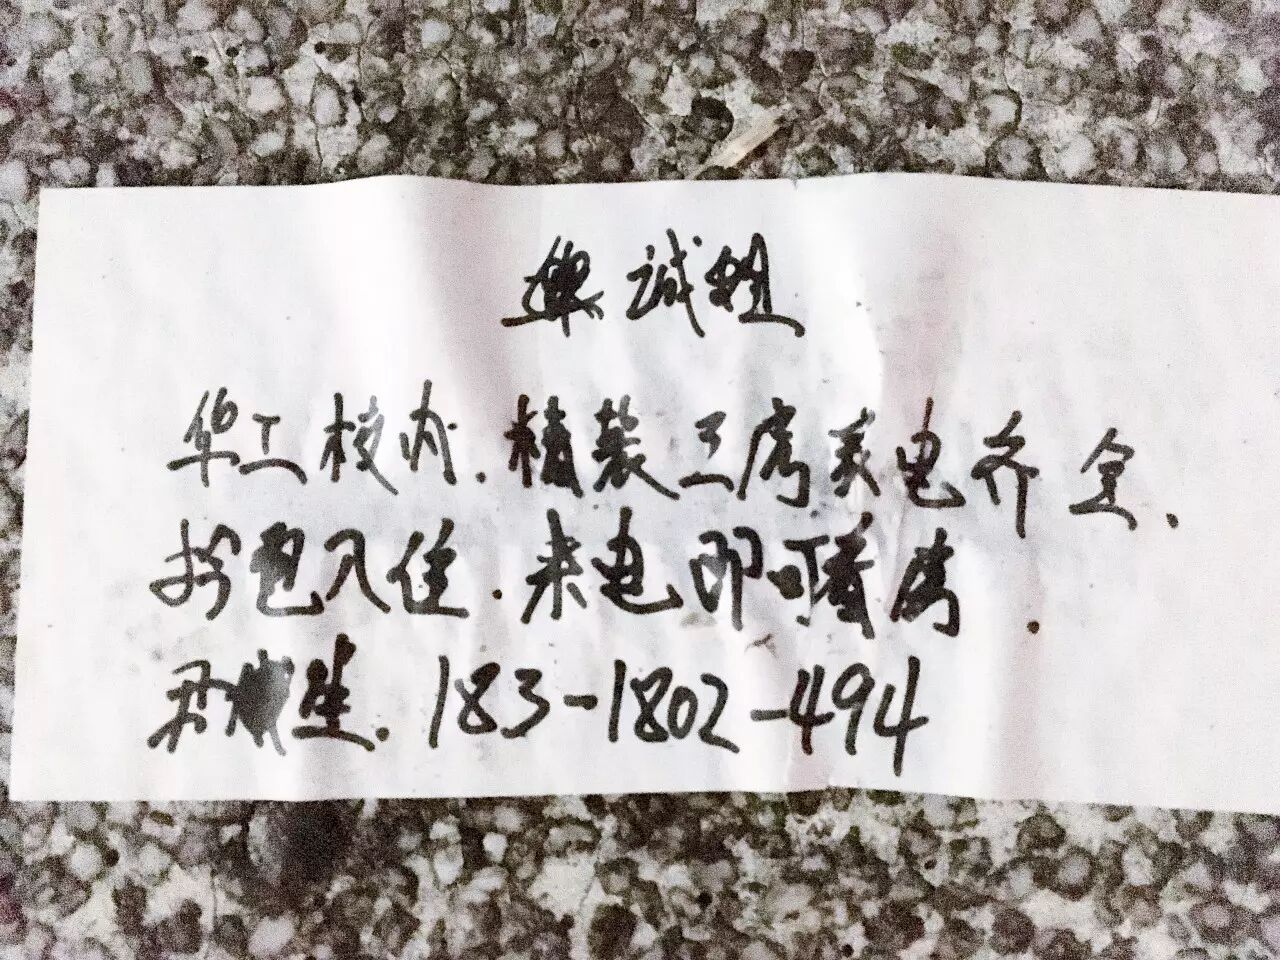 诚租
华工校内.精装三房家电齐全、
拎包入住.来电即可睇房.
生.183-1802-494